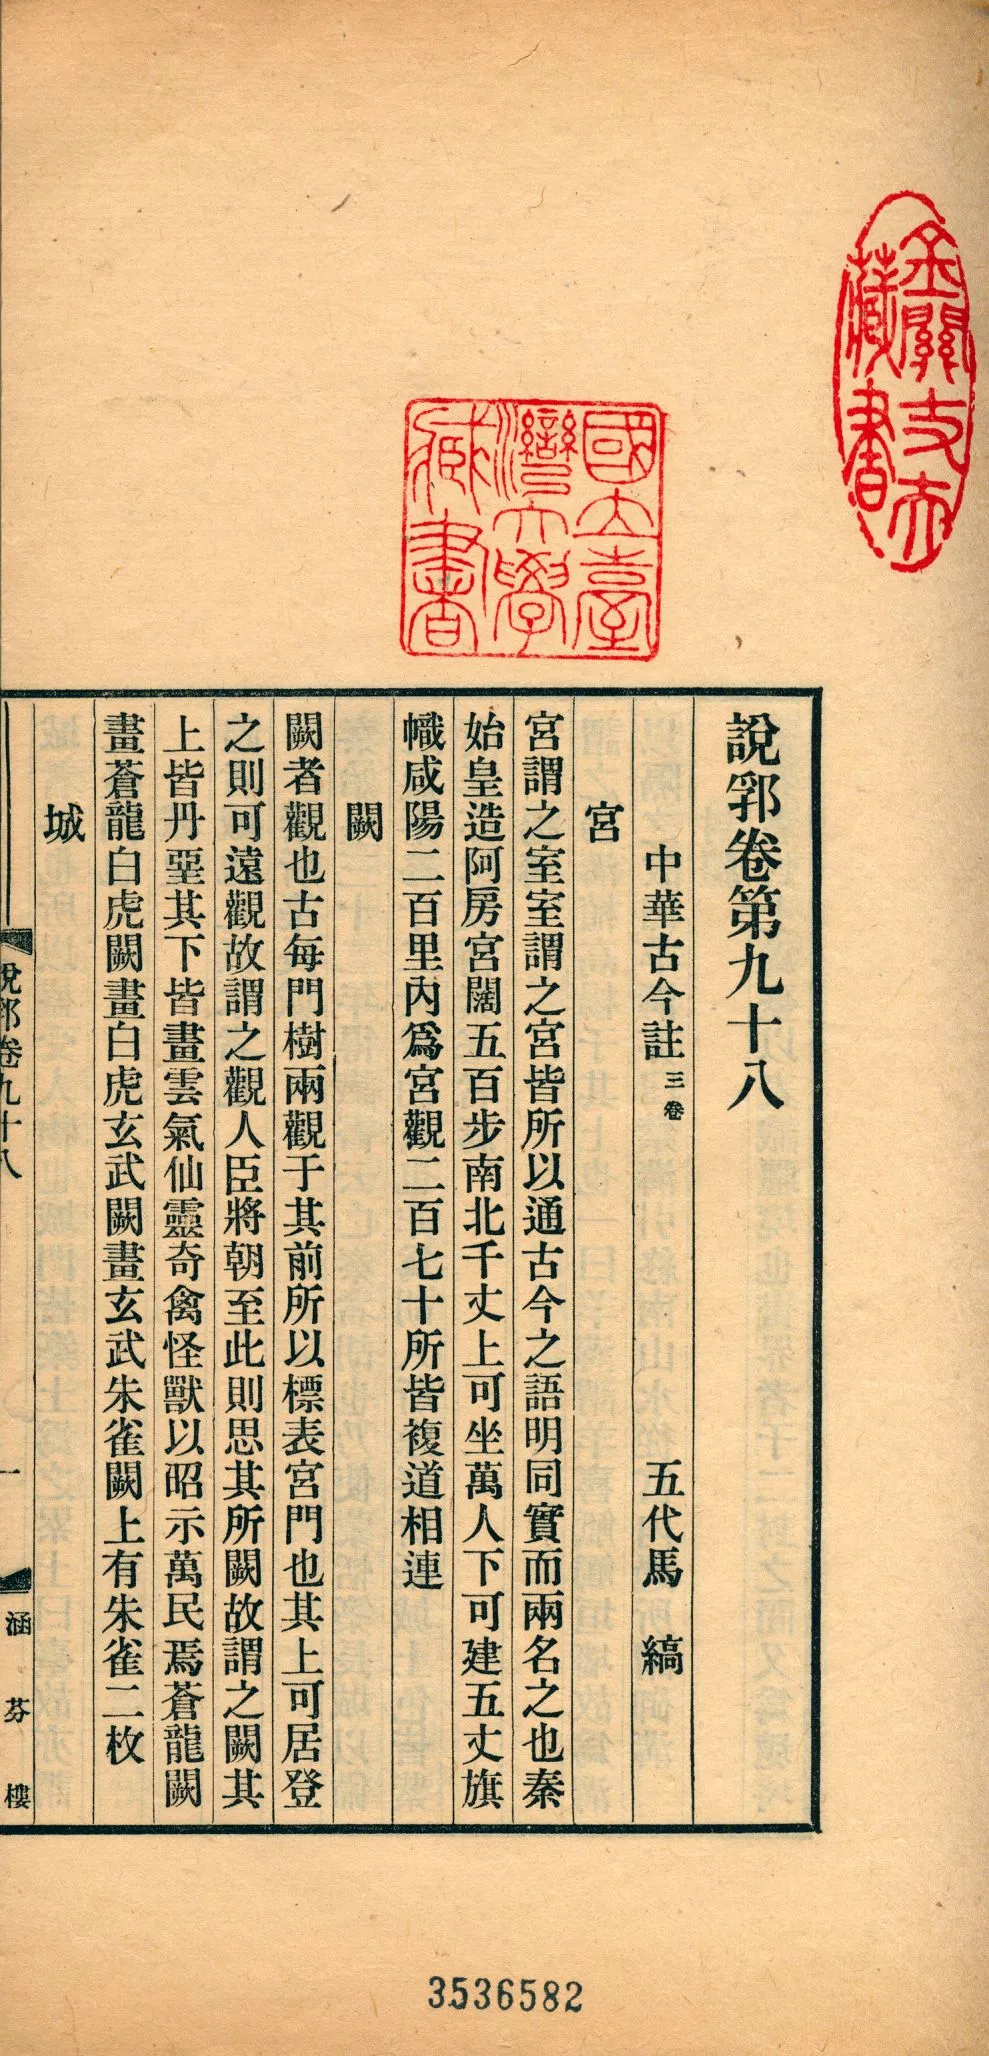 說郛卷第九十八
中華古今註三卷 五代馬 縞
宮
宮謂之室室謂之宮皆所以通古今之語明同實而兩名之也秦
始皇造阿房宮闊五百步南北千丈上可坐萬人下可建五丈旗
幟咸陽二百里內爲宮觀二百七十所皆複道相連
闕
闕者觀也古每門樹兩觀于其前所以標表宮門也其上可居登
之則可遠觀故謂之觀人臣將朝至此則思其所闕故謂之闕其
上皆丹堊其下皆畫雲氣仙靈奇禽怪獸以昭示萬民焉蒼龍闕
畫蒼龍白虎闕畫白虎玄武闕畫玄武朱雀闕上有朱雀二枚
城
說郛卷九十八 一 涵芬樓
國立臺
灣大學
藏書
金關丈夫
藏書
3536582